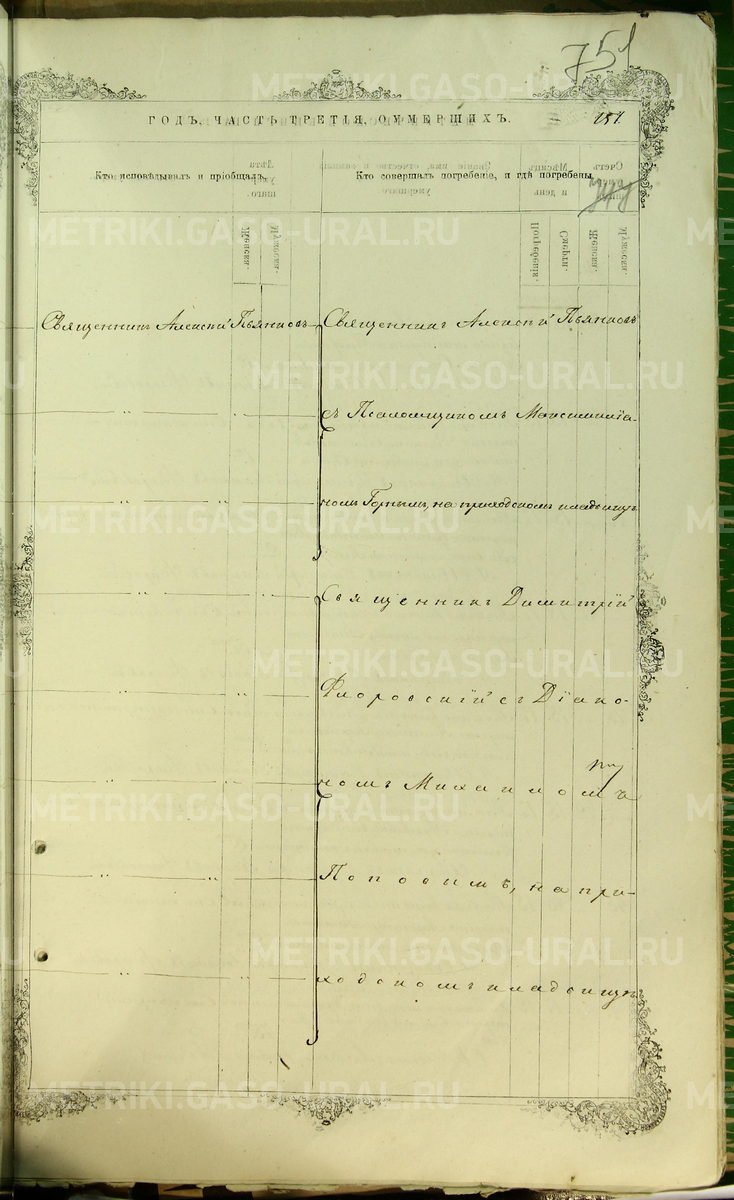 751
ГОДЪ, ЧАСТЬ ТРЕТІЯ, О УМЕРШИХЪ.
151.
Кто исповѣдывалъ и пріобщалъ.
Кто совершалъ погребеніе, и гдѣ погребены.
Священникъ Алексій Пьянковъ
Священникъ Алексій Пьянковъ
съ Псаломщикомъ Максимиліа-
номъ Горнымъ, на приходскомъ кладбищѣ
Священникъ Димитрій
Флоровскій съ Діако-
номъ Михаиломъ
Поповымъ, на при-
ходскомъ кладбищѣ
METRIKI.GASO-URAL.RU